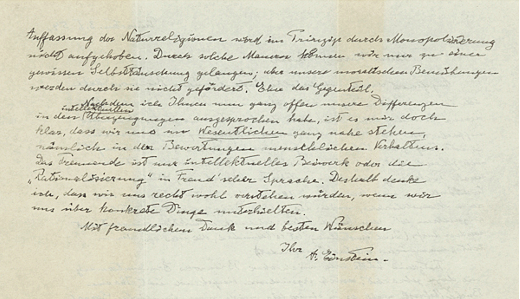 Auffassung der Naturreligionen wird im Prinzip durch Monopolisierung
nicht aufgehoben. Durch solche Mauern können wir nur zu einer
gewissen Selbsttäuschung gelangen; aber unsere moralischen Bemühungen
werden durch sie nicht gefördert. Eher das Gegenteil.
Nachdem ich Ihnen nun ganz offen unsere Differenzen
intellektuellen
in den Überzeugungen ausgesprochen habe, ist es mir doch
klar, dass wir uns im Wesentlichen ganz nahe stehen,
nämlich in den Bewertungen menschlichen Verhaltens.
Das Trennende ist nur intellektuelles Beiwerk oder die
"Rationalisierung" in Freud'scher Sprache. Deshalb denke
ich, dass wir uns recht wohl verstehen würden, wenn wir
uns über konkrete Dinge unterhielten.
Mit freundlichem Dank und besten Wünschen
Ihr
A. Einstein.